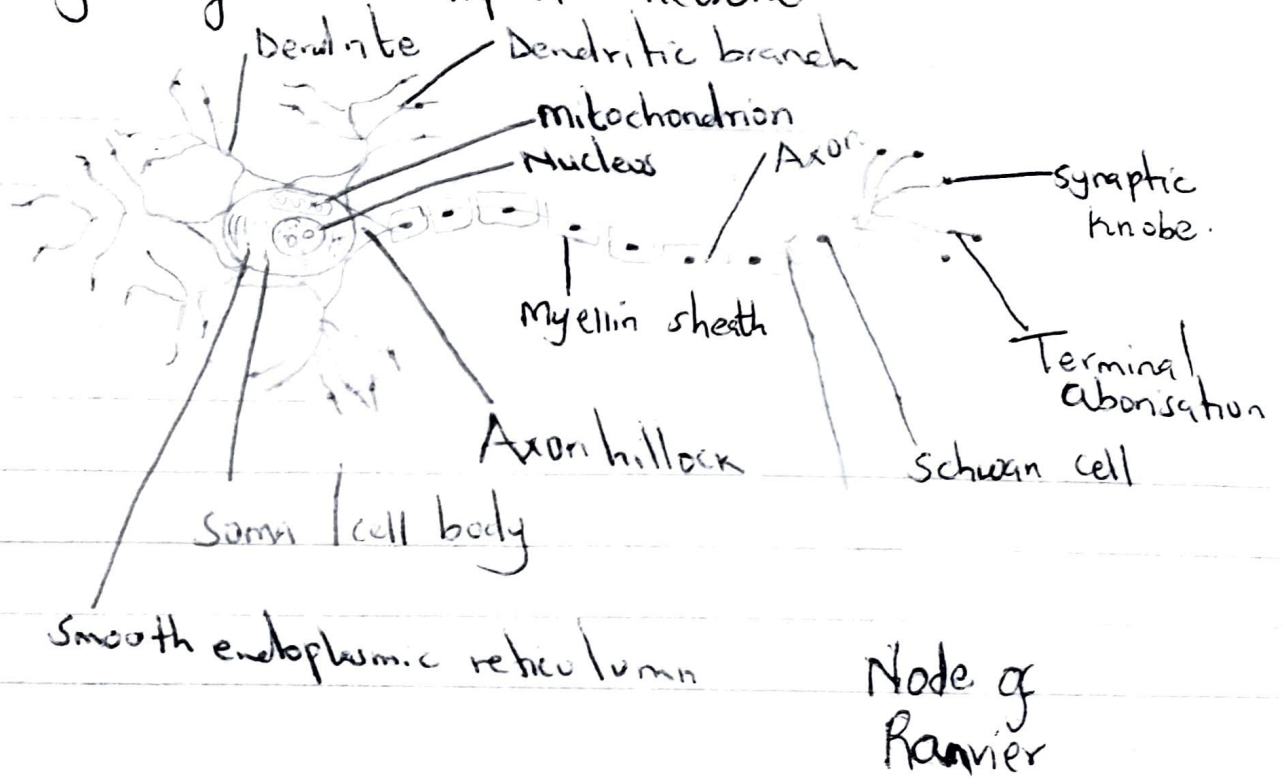 Dendrite
Dendritic branch
Mitochondrion
Nucleus
Axon
synaptic
knobe.
Myellin sheath
Terminal
aborisation
Axon hillock
Schwan cell
Soma / cell body
Smooth endoplasmic reticulumn
Node of
Ranvier